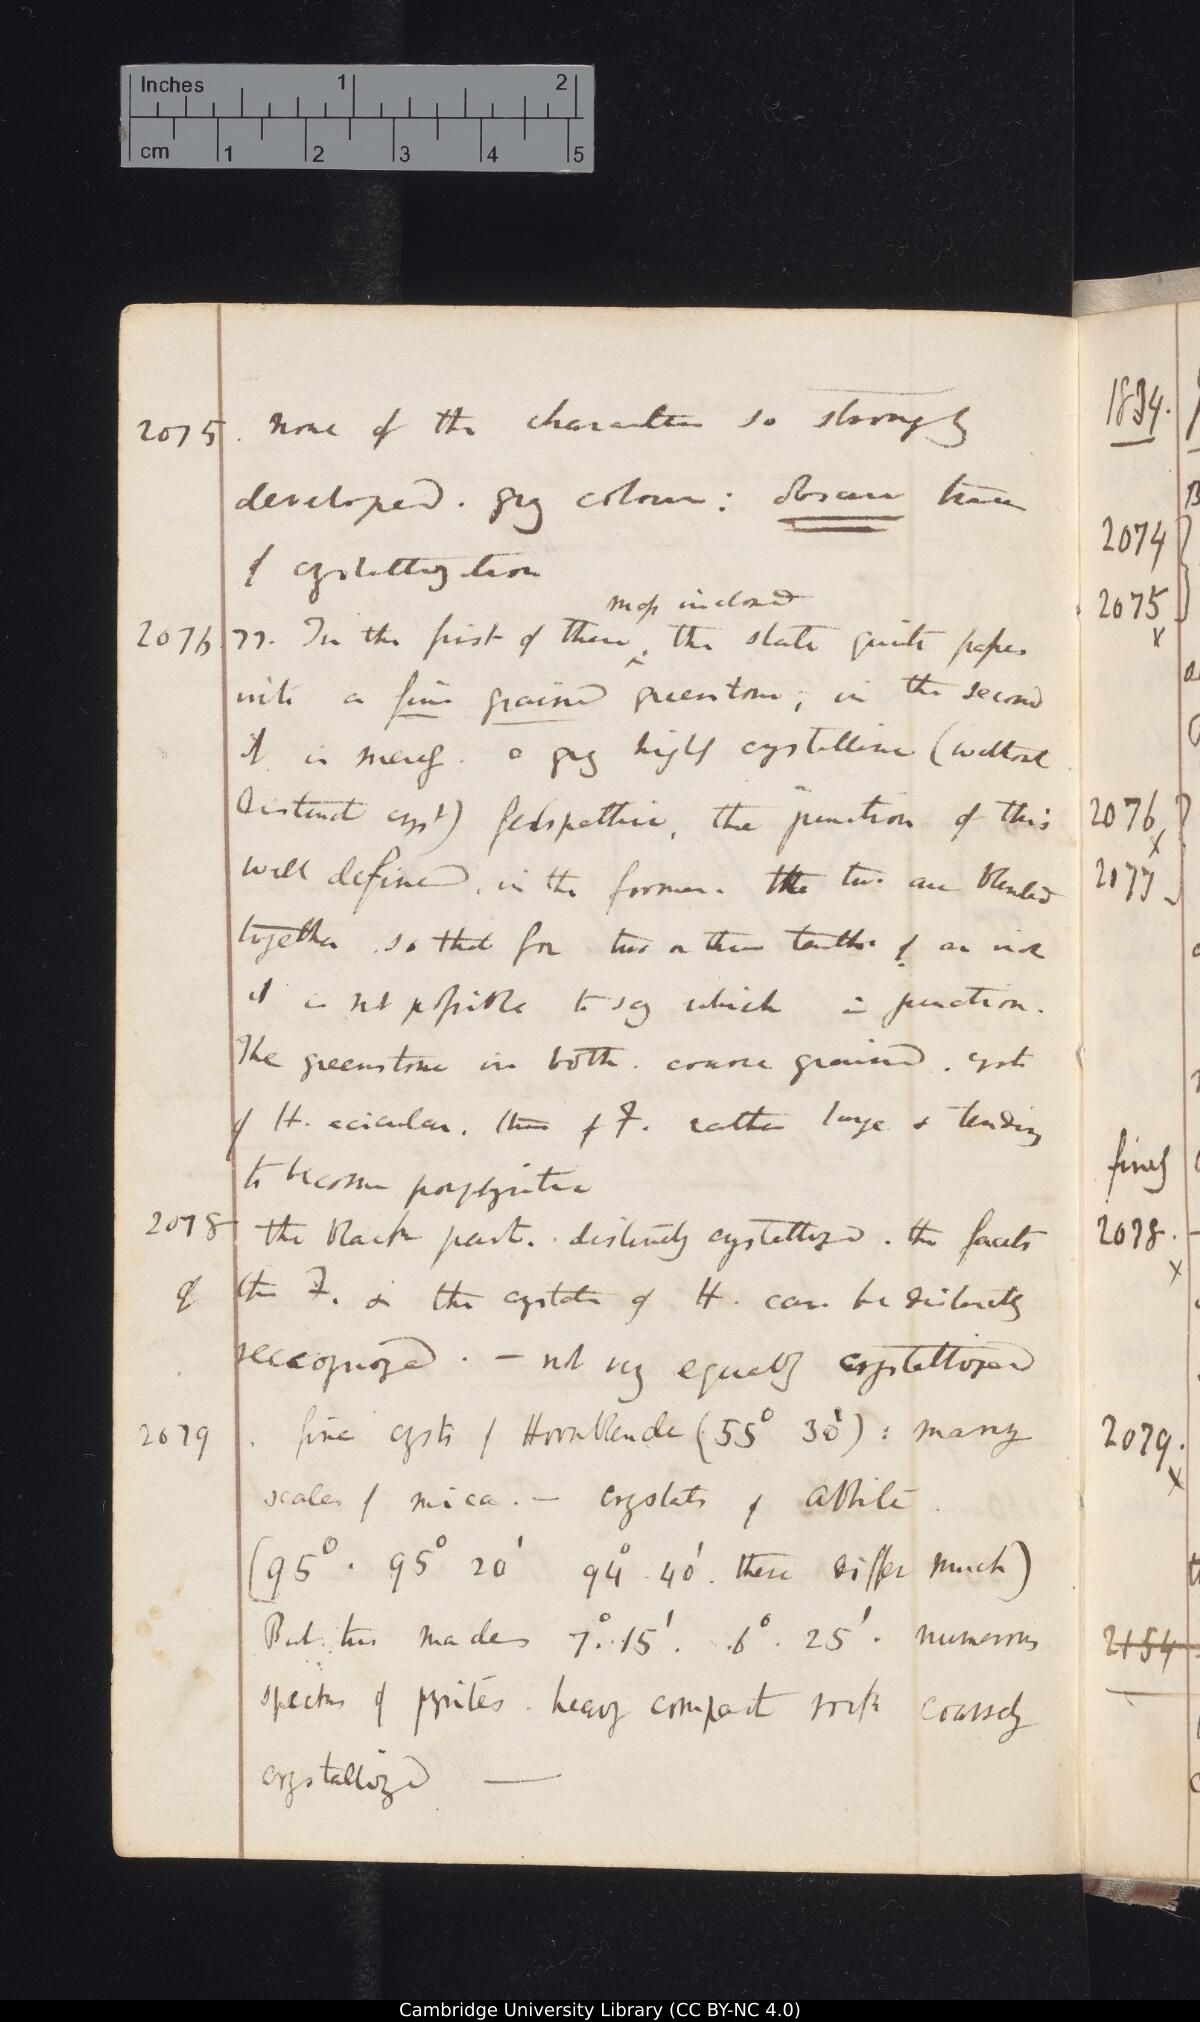 Inches 1 2
cm 1 2 3 4 5
2075. none of the characters so strongly
developed. grey colour: obscure trace
of crystallization
mass inclosed
2076 77. In the first of these, the slate quite passes
into a fine grained greenstone; in the second
it is merely a grey highly crystalline (without
distinct cryst) feldspathic, the junction of this
well defined, in the former. the two are blended
together so that for two or three tenths of an inch
it is not possible to say which is junction.
The greenstone in both. coarse grained. cryst
of H. acicular. those of F. rather large & tending
to become porphyritic
2078 the black part. distinctly crystallized. the facets
of the F. & the crystals of H. can be distinctly
reccognized. — not very equally crystallized
2079. fine crysts of Hornblende (55° 30'): many
scales of mica. — crystals of albite
(95°. 95° 20' 94° 40'. these differ much)
But two macles 7°. 15'. 6°. 25'. numerous
specks of pyrites. heavy compact rock coarsely
crystallized —
1834.
2074
2075
x
2076
x
2077
finely
2078.
x
2079.
x
2154
Cambridge University Library (CC BY-NC 4.0)